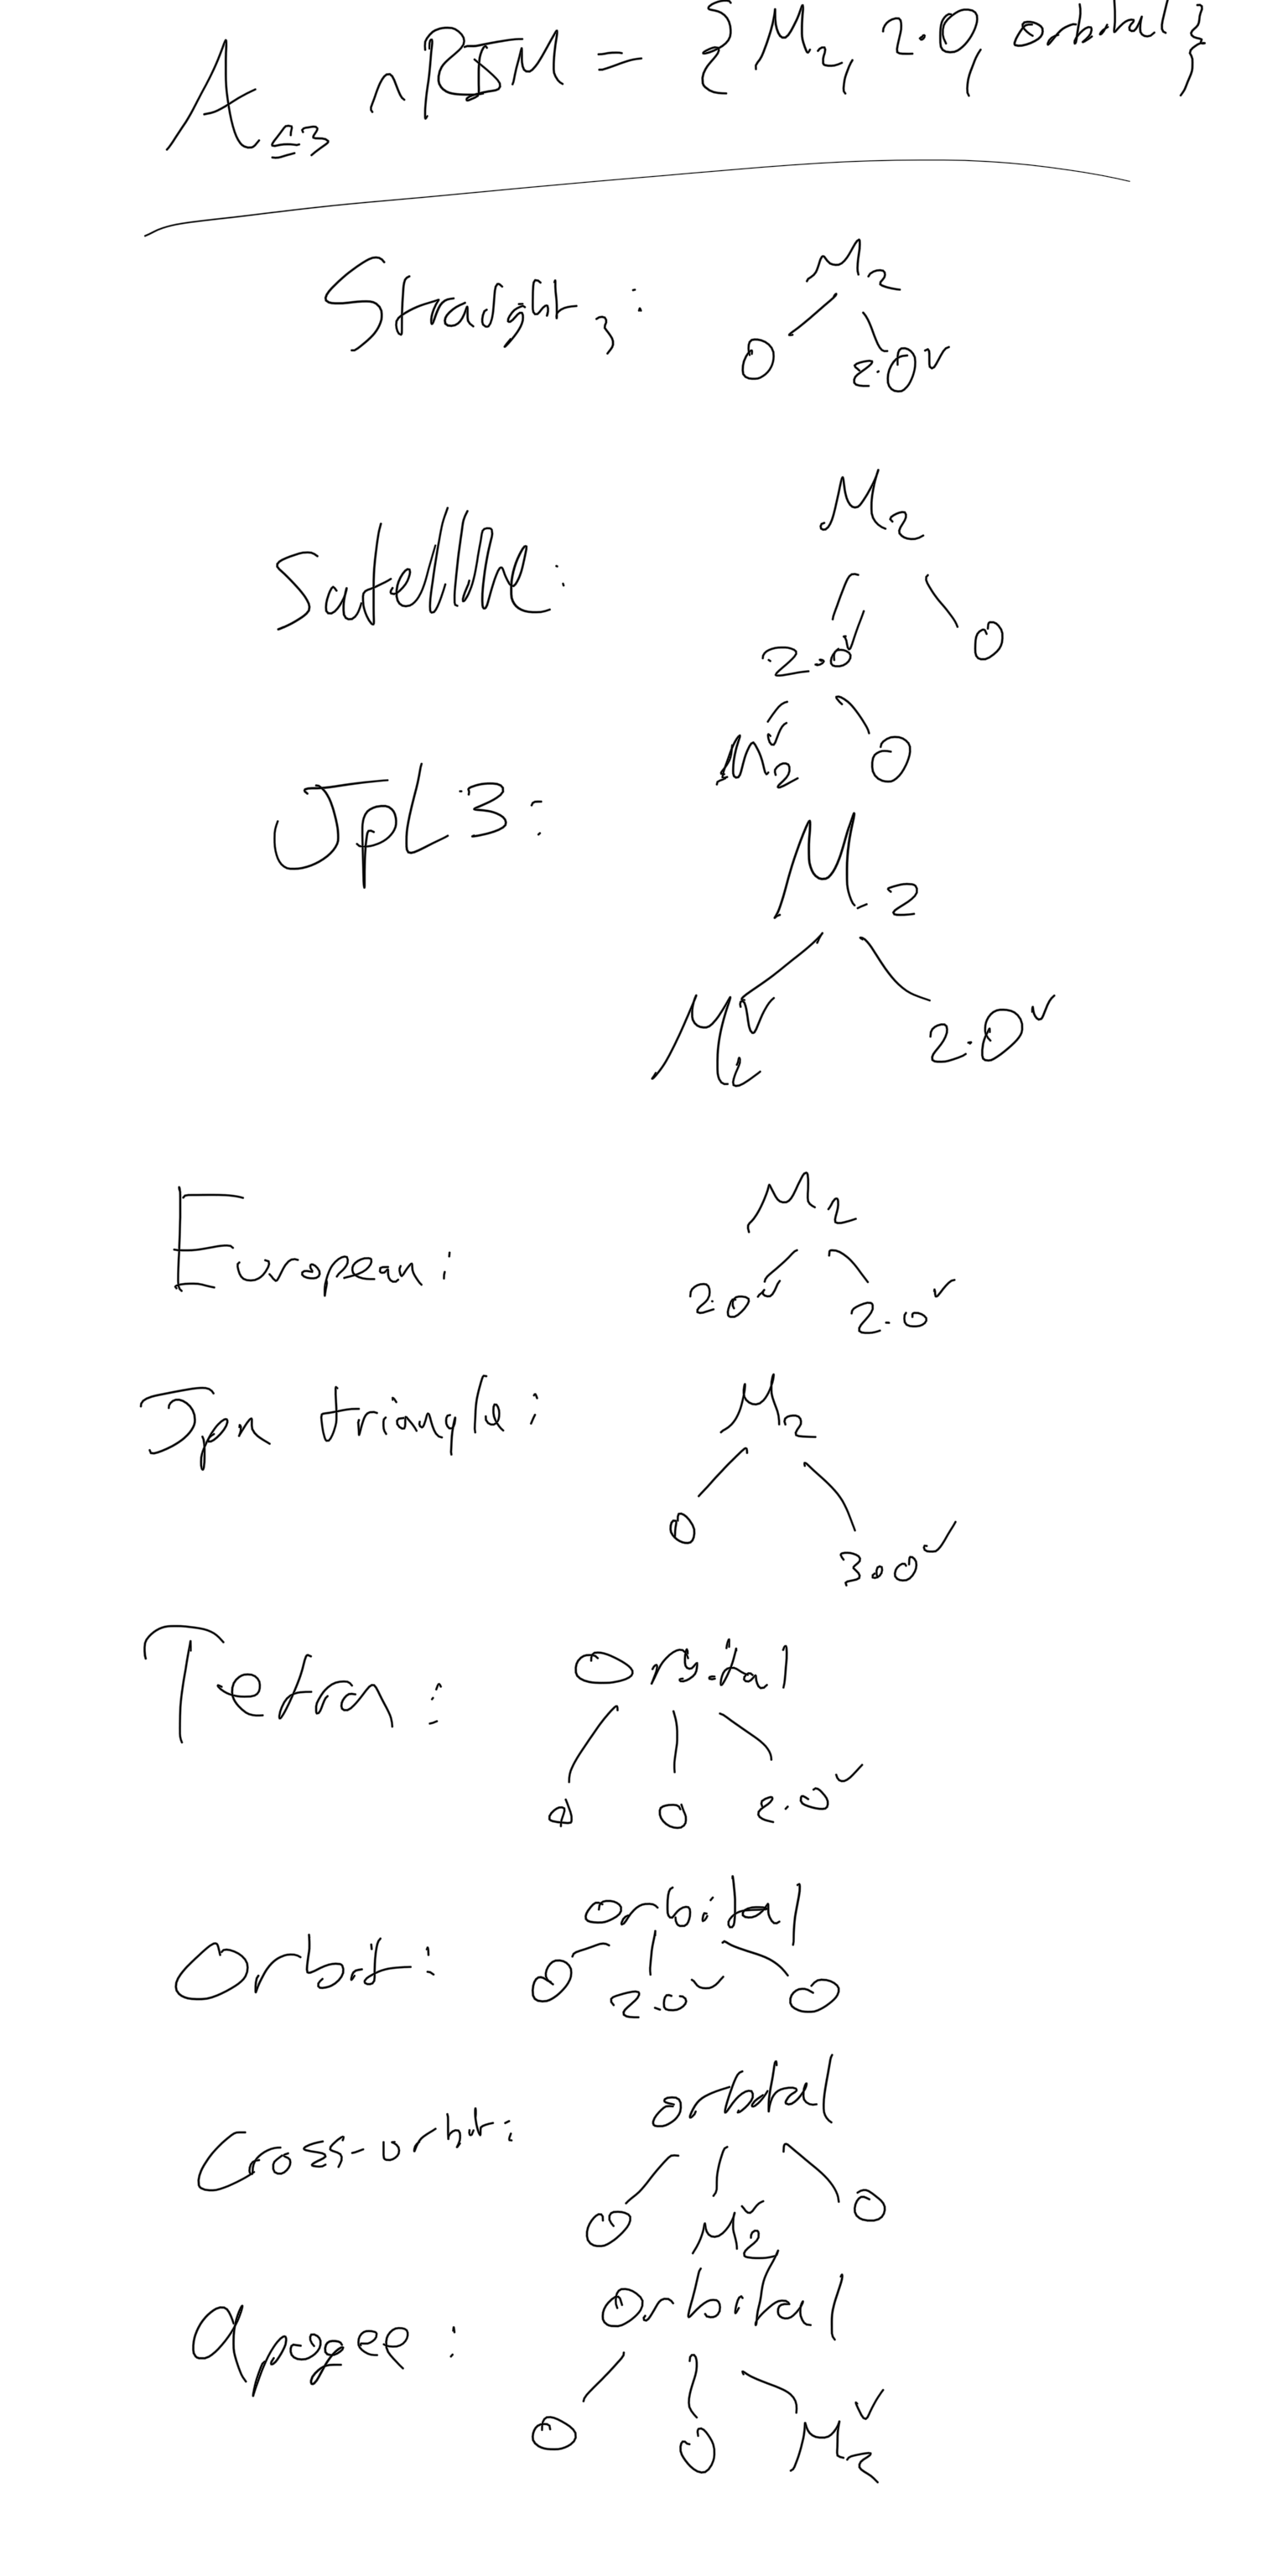 A≤3 ∩ RIM = {M₂, 2·O, orbital}
Straight₃:
M₂
O 2·O✓
Satellite:
M₂
2·O✓ O
M₂✓ O
JpL3:
M₂
M₂✓ 2·O✓
European:
M₂
2·O✓ 2·O✓
Jpn triangle:
M₂
O 3·O✓
Tetra:
Orbital
O O 2·O✓
Orbit:
orbital
O 2·O✓ O
Cross-orbit:
orbital
O M₂✓ O
apogee:
orbital
O O M₂✓